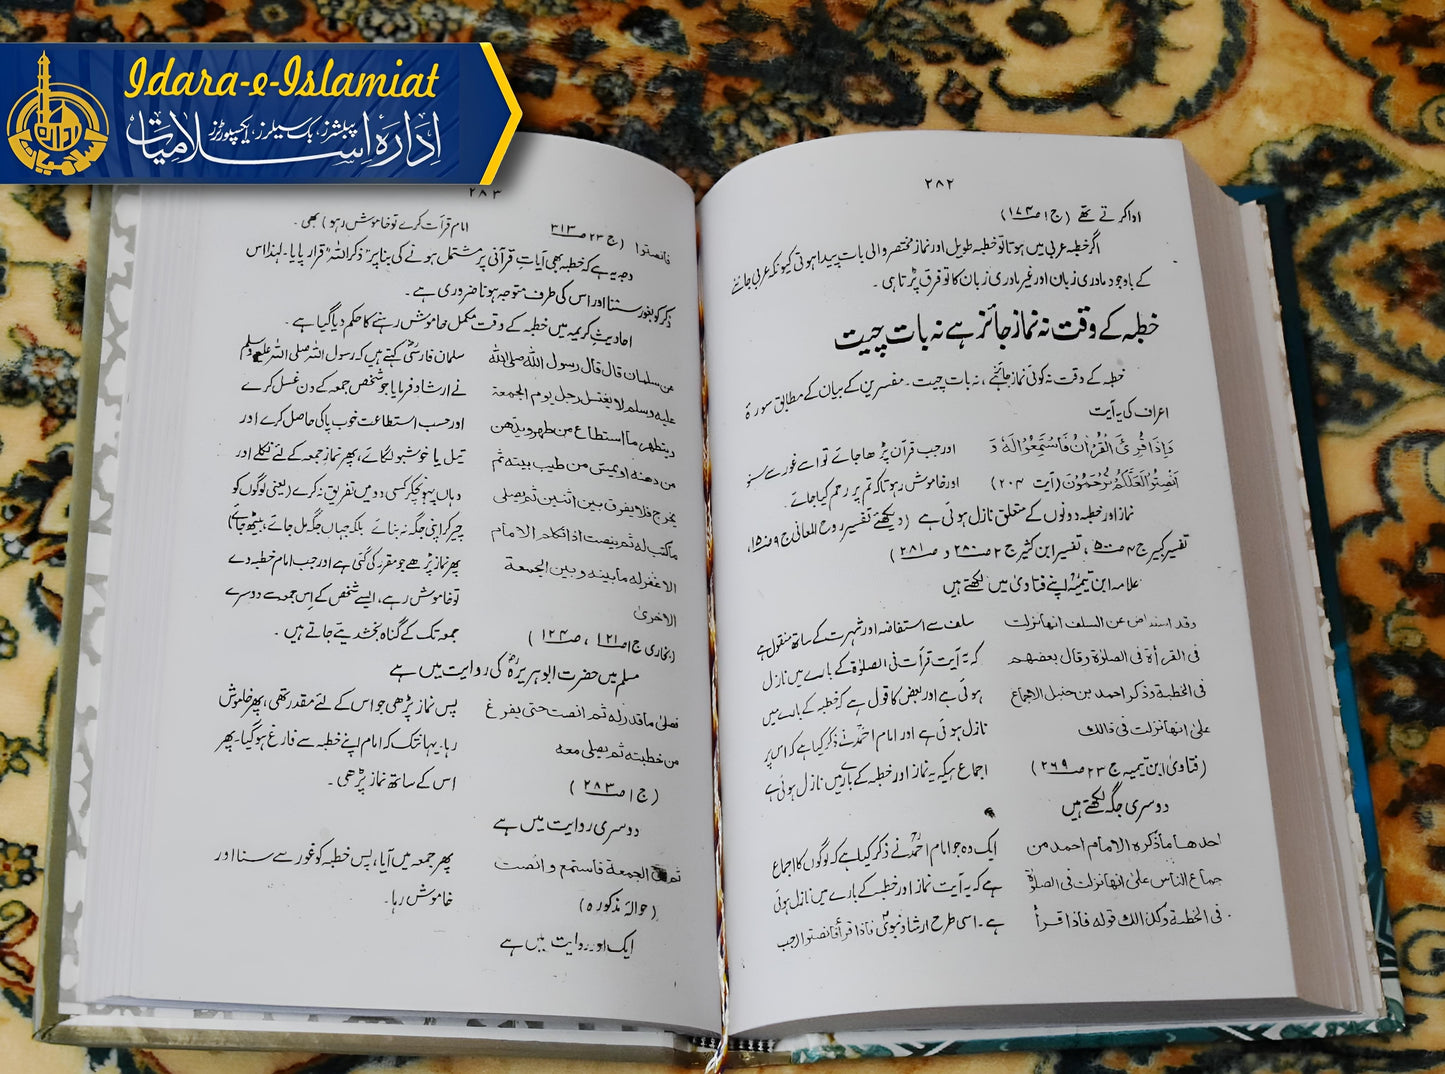 Idara-e-Islamiat
پبلشرز، بک سیلرز، ایکسپورٹرز
ادارۂ اسلامیات
۲۸۲
ادا کرتے تھے (ج ۱ صـ۱۷۴)
اگر خطبہ عربی میں ہوتا تو خطبہ طویل اور نماز مختصر والی بات پیدا ہوتی کیونکہ عربی جاننے
کے باوجود مادری زبان اور غیر مادری زبان کا تو فرق پڑتا ہی۔
خطبہ کے وقت نہ نماز جائز ہے نہ بات چیت
خطبہ کے وقت نہ کوئی نماز جائز ہے، نہ بات چیت۔ مفسرین کے بیان کے مطابق سورۃ
اعراف کی یہ آیت
وَاِذَا قُرِئَ الْقُرْاٰنُ فَاسْتَمِعُوْا لَهٗ وَ
اَنْصِتُوْا لَعَلَّكُمْ تُرْحَمُوْنَ (آیت ۲۰۴)
اور جب قرآن پڑھا جائے تو اسے غور سے سنو
اور خاموش رہو تاکہ تم پر رحم کیا جائے۔
نماز اور خطبہ دونوں کے متعلق نازل ہوئی ہے (دیکھئے تفسیر روح المعانی ج ۹ صـ۱۵۰،
تفسیر کبیر ج ۴ صـ۵۰۰، تفسیر ابن کثیر ج ۲ صـ۲۸۰ و صـ۲۸۱)
علامہ ابن تیمیہؒ اپنے فتاویٰ میں لکھتے ہیں
وقد استفاض عن السلف انها نزلت
فى القرأة فى الصلوة وقال بعضهم
فى الخطبة وذكر احمد بن حنبل الاجماع
على انها نزلت فى ذالك
(فتاویٰ ابن تیمیہ ج ۲۳ صـ۲۶۹)
سلف سے استفاضہ اور شہرت کے ساتھ منقول ہے
کہ یہ آیت قرأت فی الصلوٰۃ کے بارے میں نازل
ہوئی ہے اور بعض کا قول ہے کہ خطبہ کے بارے میں
نازل ہوئی ہے اور امام احمدؒ نے ذکر کیا ہے کہ اس پر
اجماع ہیکہ یہ نماز اور خطبہ کے بارے میں نازل ہوئی ہے
دوسری جگہ لکھتے ہیں
احدها ما ذكره الامام احمد من
جماع الناس على انها نزلت فى الصلوٰة
فى الخطبة وكذالك قوله فاذا قرأ
ایک وہ جو امام احمدؒ نے ذکر کیا ہے کہ لوگوں کا اجماع
ہے کہ یہ آیت نماز اور خطبہ کے بارے میں نازل ہوئی
ہے۔ اسی طرح ارشاد نبویؐ فاذا قرأ فانصتوا (جب
۲۸۳
فانصتوا (ج ۲۳ صـ۳۱۳
امام قرأت کرے تو خاموش رہو) بھی۔
وجہ یہ ہے کہ خطبہ بھی آیاتِ قرآنی پر مشتمل ہونے کی بنا پر "ذکر اللہ" قرار پایا۔ لہٰذا اس
ذکر کو بغور سننا اور اس کی طرف متوجہ ہونا ضروری ہے۔
احادیثِ کریمہ میں خطبہ کے وقت مکمل خاموش رہنے کا حکم دیا گیا ہے۔
عن سلمان قال قال رسول الله صلى الله
عليه وسلم لا يغتسل رجل يوم الجمعة
ويتطهر ما استطاع من طهر ويدهن
من دهنه او يمس من طيب بيته ثم
يخرج فلا يفرق بين اثنين ثم يصلى
ما كتب له ثم ينصت اذا تكلم الامام
الا غفر له ما بينه وبين الجمعة
الاخرىٰ
(بخاری ج ۱ صـ۱۲۱، صـ۱۲۴)
سلمان فارسیؓ کہتے ہیں کہ رسول اللہ صلی اللہ علیہ وسلم
نے ارشاد فرمایا جو شخص جمعہ کے دن غسل کرے
اور حسب استطاعت خوب پاکی حاصل کرے اور
تیل یا خوشبو لگائے، پھر نماز جمعہ کے لئے نکلے اور
وہاں پہونچکر کسی دو میں تفریق نہ کرے (یعنی لوگوں کو
چیر کر اپنی جگہ نہ بنائے بلکہ جہاں جگہ مل جائے، بیٹھ جائے)
پھر نماز پڑھے جو مقرر کی گئی ہے اور جب امام خطبہ دے
تو خاموش رہے، ایسے شخص کے اِس جمعہ سے دوسرے
جمعہ تک کے گناہ بخشدیتے جاتے ہیں۔
مسلم میں حضرت ابوہریرہؓ کی روایت میں ہے
فصلى ما قدر له ثم انصت حتى يفرغ
من خطبته ثم يصلى معه
(ج ۱ صـ۲۸۳)
پس نماز پڑھی جو اس کے لئے مقدر تھی، پھر خاموش
رہا۔ یہانتک کہ امام اپنے خطبہ سے فارغ ہوگیا۔ پھر
اس کے ساتھ نماز پڑھی۔
دوسری روایت میں ہے
الجمعة فاستمع وانصت
(حوالہ مذکورہ)
پھر جمعہ میں آیا، پس خطبہ کو غور سے سنا اور
خاموش رہا۔
ایک اور روایت میں ہے